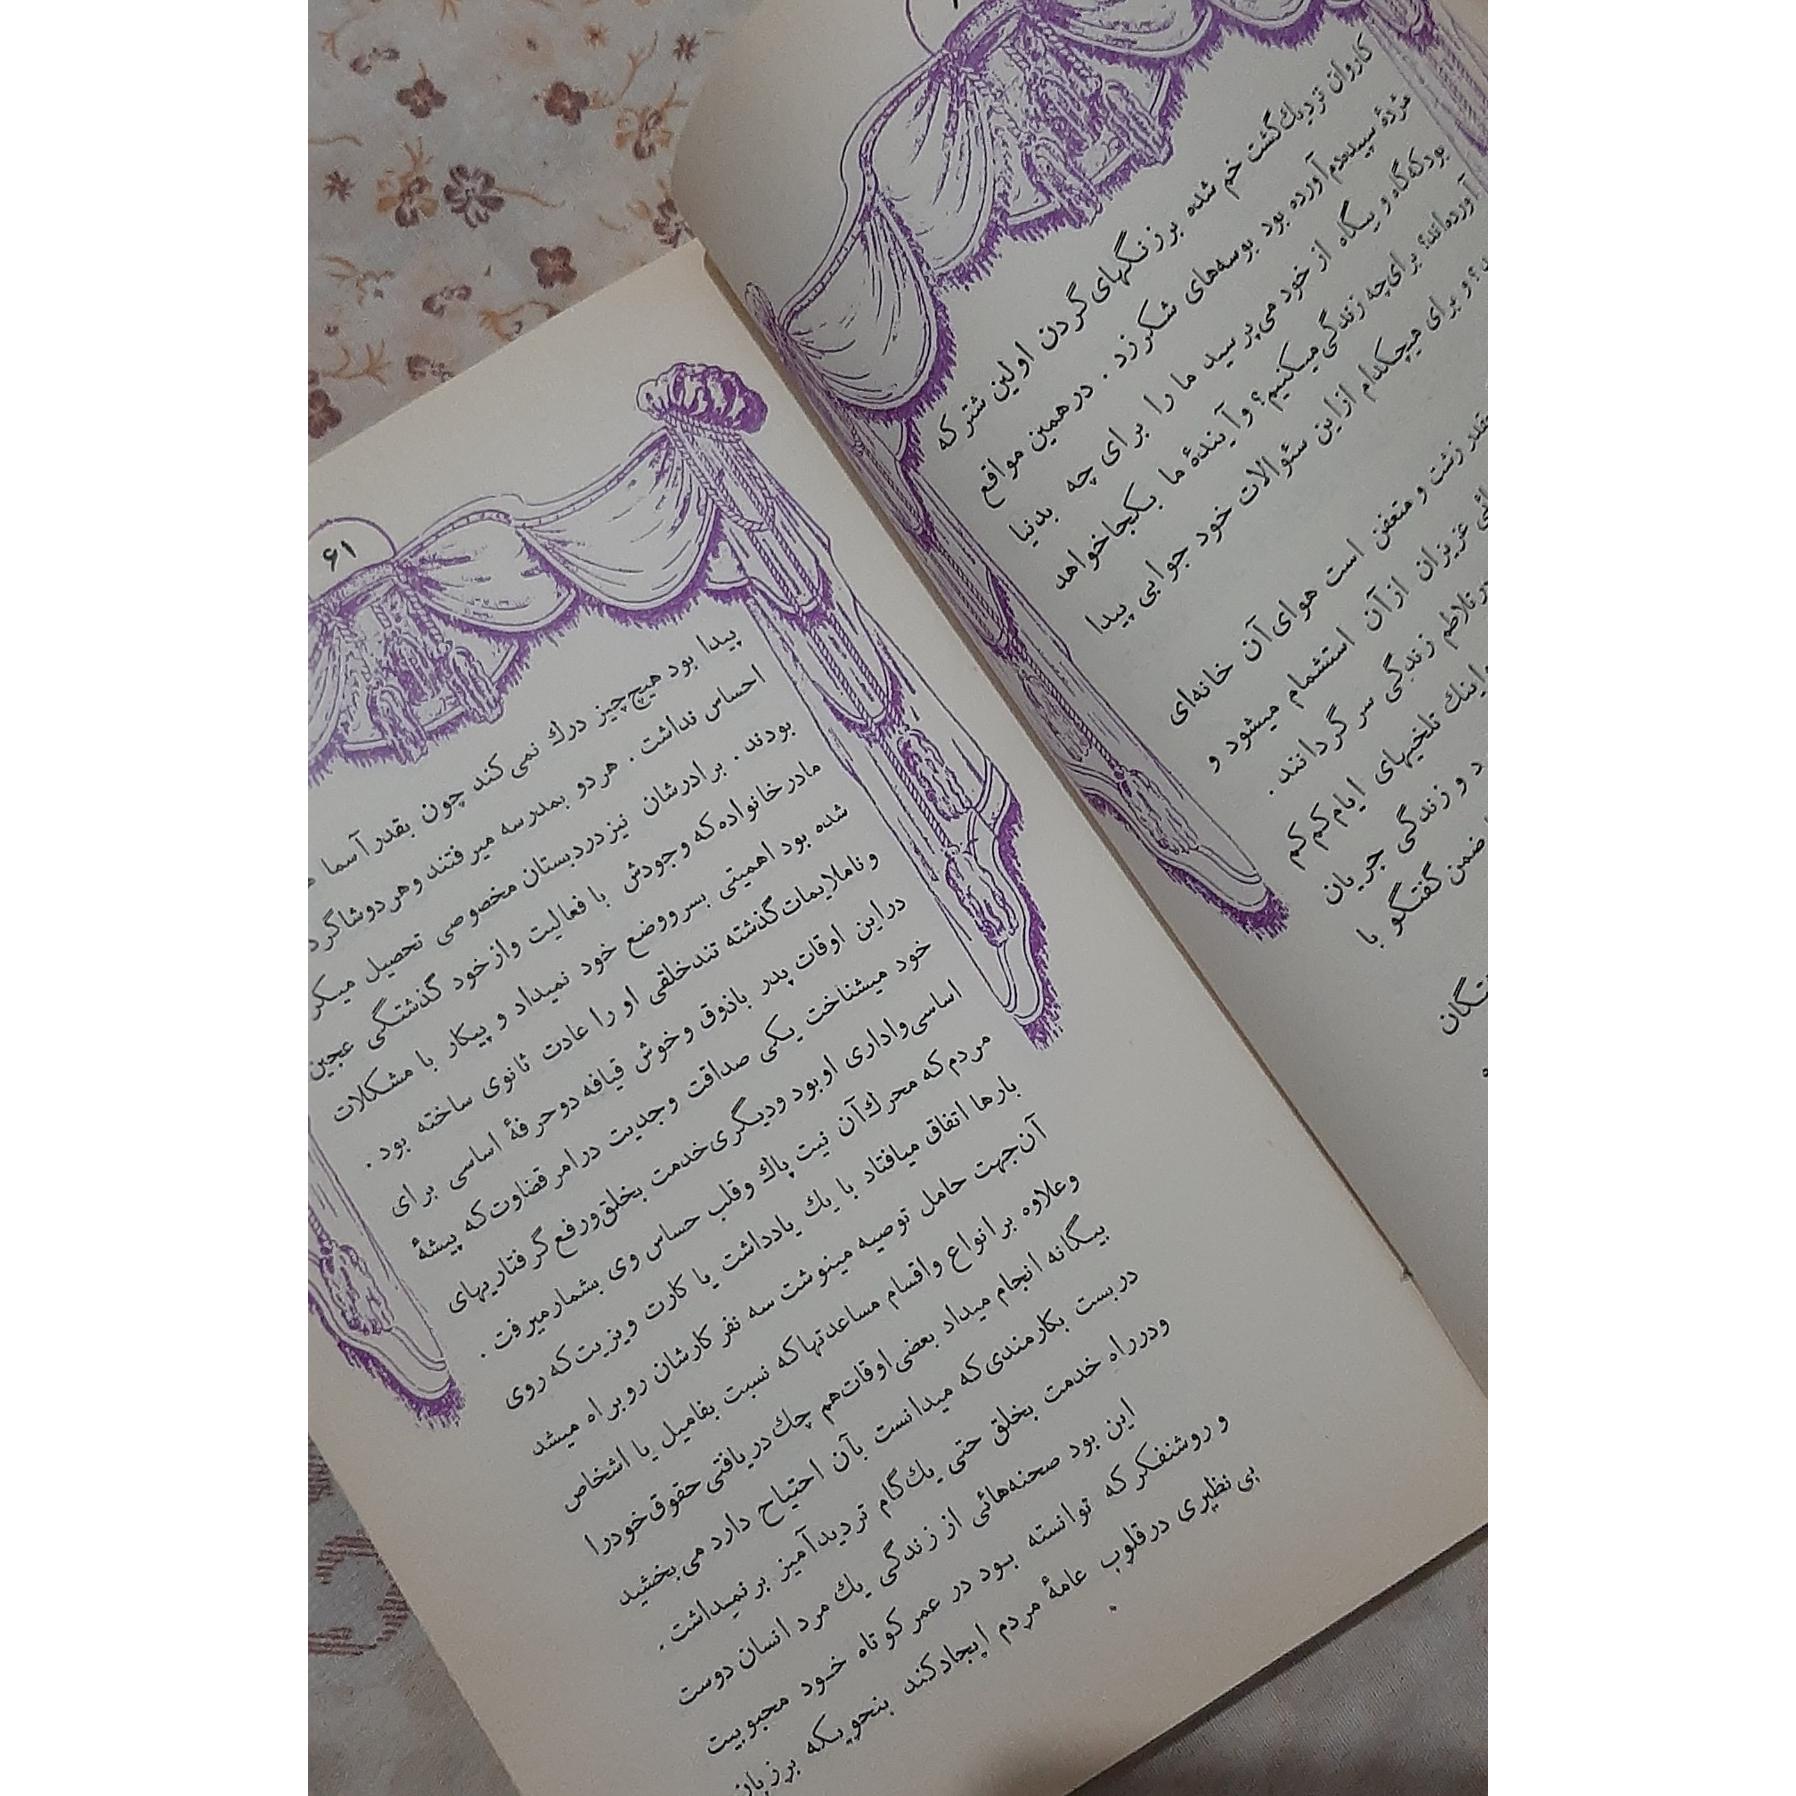 کاروان نزدیك گشت خم شده بر زنگهای گردن اولین شتر که
مژدهٔ سپیده‌دم آورده بود بوسه‌های شکر زد . در همین مواقع
بود که گاه و بیگاه از خود می‌پرسید ما را برای چه بدنیا
آورده‌اند؟ برای چه زندگی میکنیم؟ و آیندهٔ ما بکجا خواهد
؟ و برای هیچکدام از این سئوالات خود جوابی پیدا
قدر زشت و متعفن است هوای آن خانه‌ای
عزیزان از آن استشمام میشود و
تلاطم زندگی سرگردانند .
اینك تلخیهای ایام کم کم
د و زندگی جریان
ضمن گفتگو با
۶۱
پیدا بود هیچ چیز درك نمی کند چون بقدر آسما
احساس نداشت . هر دو بمدرسه میرفتند و هر دو شاگرد
بودند . برادرشان نیز در دبستان مخصوصی تحصیل میکر
مادر خانواده که وجودش با فعالیت و از خود گذشتگی عجین
شده بود اهمیتی بسر و وضع خود نمیداد و پیکار با مشکلات
و ناملایمات گذشته تندخلقی او را عادت ثانوی ساخته بود .
در این اوقات پدر باذوق و خوش قیافه دو حرفهٔ اساسی برای
خود میشناخت یکی صداقت و جدیت در امر قضاوت که پیشهٔ
اساسی و اداری او بود و دیگری خدمت بخلق و رفع گرفتاریهای
مردم که محرك آن نیت پاك و قلب حساس وی بشمار میرفت .
بارها اتفاق میافتاد با یك یادداشت یا کارت ویزیت که روی
آن جهت حامل توصیه مینوشت سه نفر کارشان روبراه میشد
و علاوه بر انواع و اقسام مساعدتها که نسبت بفامیل یا اشخاص
بیگانه انجام میداد بعضی اوقات هم چك دریافتی حقوق خود را
دربست بکارمندی که میدانست بآن احتیاج دارد می بخشید
و در راه خدمت بخلق حتی یك گام تردید آمیز بر نمیداشت .
این بود صحنه‌هائی از زندگی یك مرد انسان دوست
و روشنفکر که توانسته بود در عمر کوتاه خود محبوبیت
بی نظیری در قلوب عامهٔ مردم ایجاد کند بنحویکه بر زبان